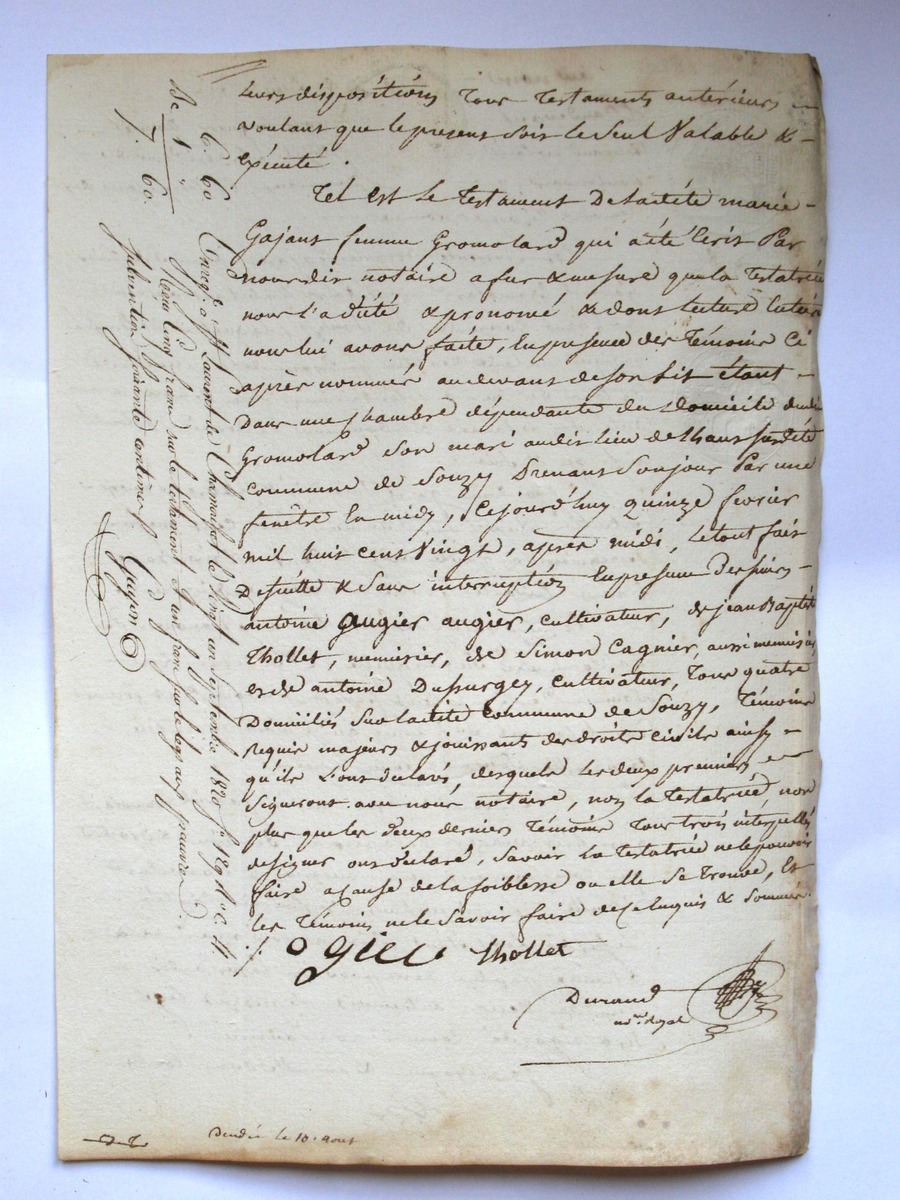 leurs dispositions Tous Testaments antérieurs
voulant que le present soit le seul Valable &
Exécuté.
Tel est le Testament de ladite marie
Gajans femme Gromolard qui a été Ecrit Par
nous dit notaire a fur & mesure que la Testatrice
nous l'a dicté & prononcé & dont lecture Entière
nous lui avons faite, En presence des Témoins Ci
après nommés au devant de son lit étant
Dans une chambre dépendante du Domicile dudit
Gromolard son mari audit lieu de
commune de Souzy Prenant son jour Par une
fenêtre En midy, Cejourd'huy quinze février
mil huit cent Vingt, après midi, le tout fait
De suitte & sans interruption En presence des sieurs
antoine augier, cultivateur, de jean Baptiste
Thollet, menuisier, de Simon Cagnier, aussi menuisier
et de antoine Dussurgey, cultivateur, Tous quatre
Domiciliés sur ladite commune de Souzy, Témoins
requis majeurs & jouissants des droits civils ainsy
qu'ils L'ont déclaré, desquels Les deux premiers
signeront avec nous notaire, non la Testatrice non
plus que les deux derniers Témoins Tous trois interpellés
de signer ont déclaré, savoir La Testatrice ne le pouvoir
faire a cause de la foiblesse ou elle se Trouve, Et
les Témoins ne le savoir faire de ce Enquis & sommés.
ogier Thollet
Durand
not.re Royal
6. 60
1 "
7. 60
Enreg.é à S.t Laurent de Chamousset le cinq septembre 1820 f.o 189 R.o C. 4
Reçu cinq francs sur le testament & un franc sur le legs aux pauvres
subvention soixante centimes
Guyon
Décédée le 10 aout